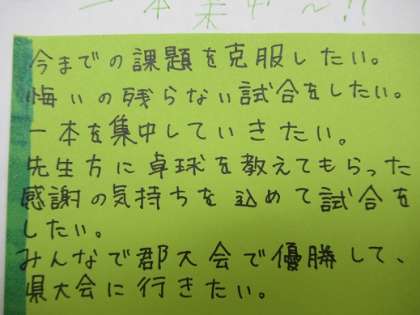 一本集中〜!!
今までの課題を克服したい。
悔いの残らない試合をしたい。
一本を集中していきたい。
先生方に卓球を教えてもらった
感謝の気持ちを込めて試合を
したい。
みんなで郡大会で優勝して、
県大会に行きたい。